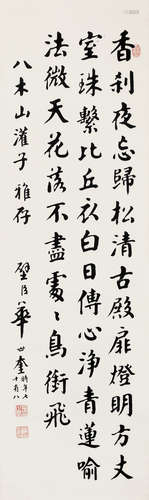 香刹夜忘歸松清古殿扉燈明方丈
室珠繫比丘衣白日傳心淨青蓮喻
法微天花落不盡處〻鳥銜飛
八木山灌子雅存 璧臣華世奎時年七十有八